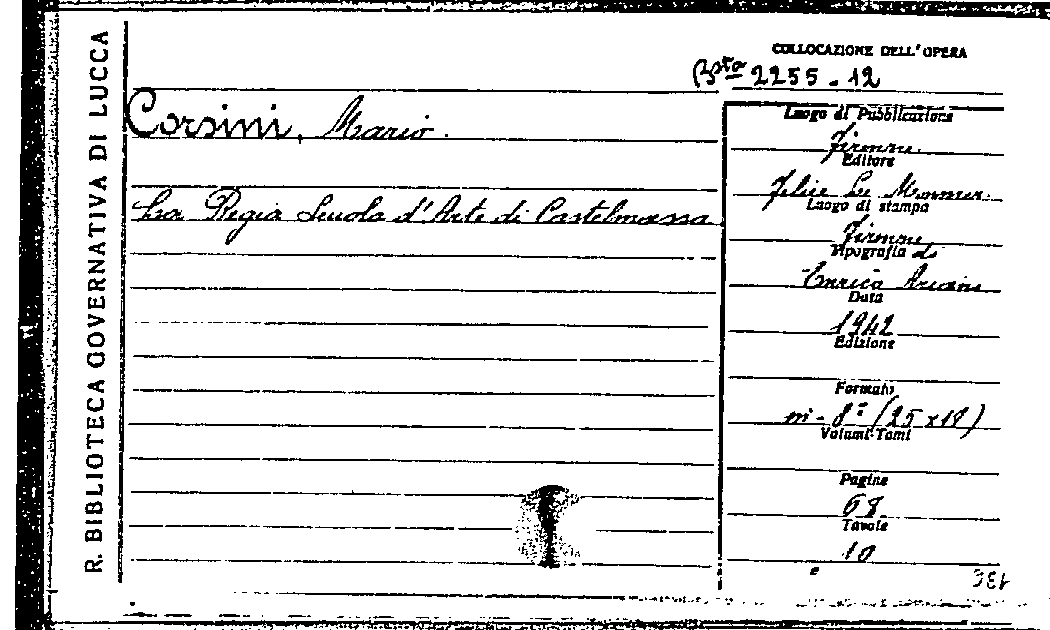 R. BIBLIOTECA GOVERNATIVA DI LUCCA
COLLOCAZIONE DELL'OPERA
Bta 2255-12
Corsini, Mario.
La Regia Scuola d'Arte di Castelmassa
Luogo di Pubblicazione
Firenze
Editore
Felice Le Monnier
Luogo di stampa
Firenze
Tipografia di
Enrico Ariani
Data
1942
Edizione
Formato
in-8° (25x18)
Volumi-Tomi
Pagine
68
Tavole
10